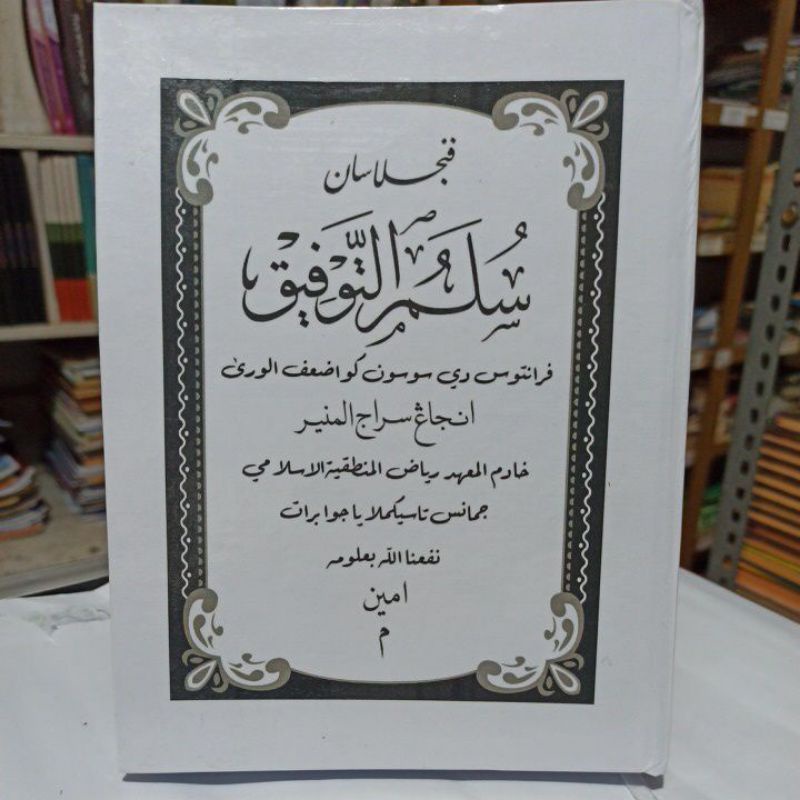 فنجلاسان
سُلَّمُ التَّوْفِيْقِ
فرانتوس دي سوسون كو اضعف الورى
انجاڠ سراج المنير
خادم المعهد رياض المنطقية الاسلامي
جمانس تاسيكملايا جوا برات
نفعنا الله بعلومه
امين
م